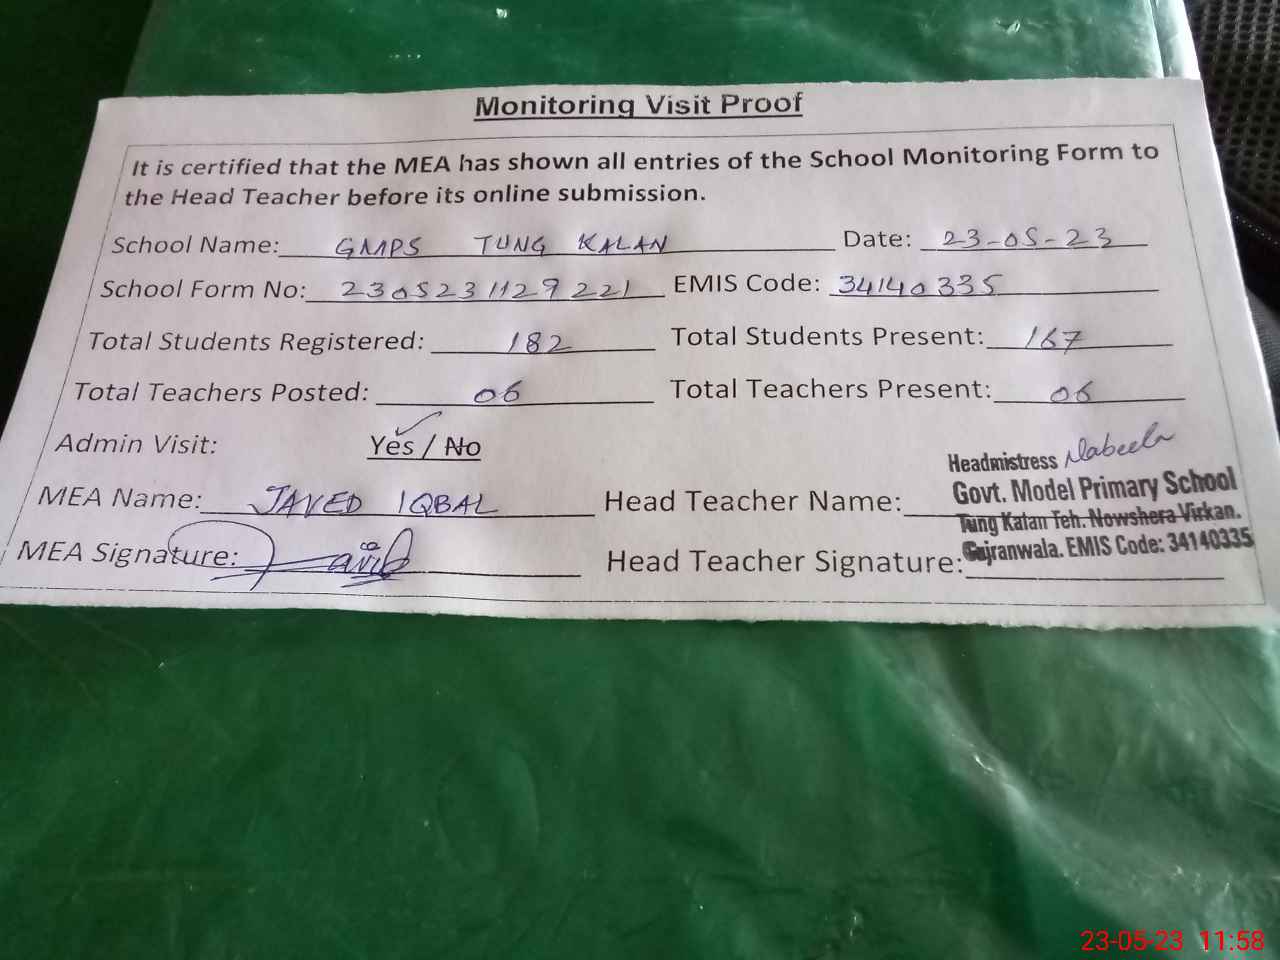 Monitoring Visit Proof
It is certified that the MEA has shown all entries of the School Monitoring Form to
the Head Teacher before its online submission.
School Name: GMPS TUNG KALAN Date: 23-05-23
School Form No: 2305231129221 EMIS Code: 34140335
Total Students Registered: 182 Total Students Present: 167
Total Teachers Posted: 06 Total Teachers Present: 06
Admin Visit: Yes / No
MEA Name: JAVED IQBAL Head Teacher Name:
Headmistress Nabeela
Govt. Model Primary School
Tung Kalan Teh. Nowshera Virkan.
Gujranwala. EMIS Code: 34140335
MEA Signature: Head Teacher Signature:
23-05-23 11:58